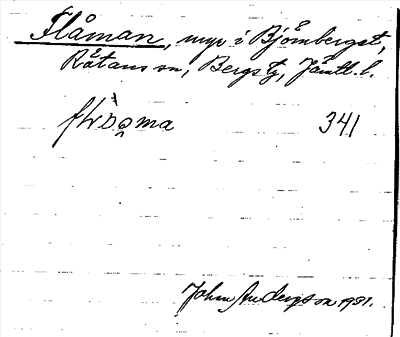 Flåman, myr i Björnberget,
Rätans sn, Bergs tg, Jämtl. l.
341
Johan Anderson 1931.